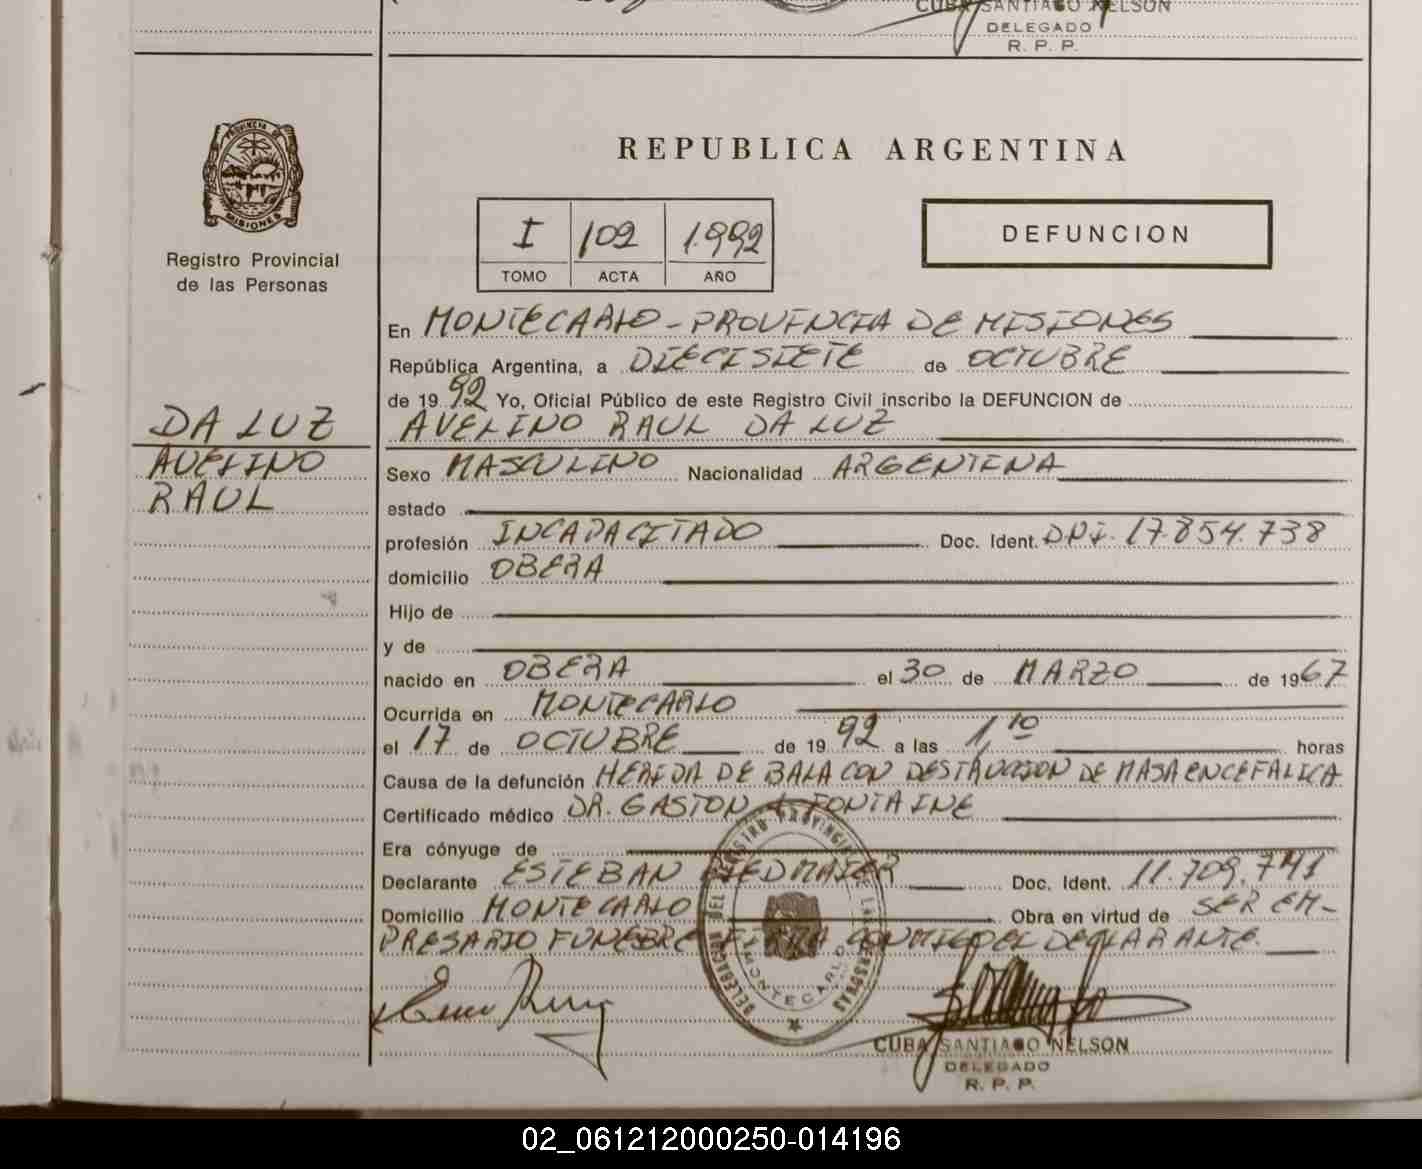 CUBA SANTIAGO NELSON
DELEGADO
R. P. P.
PROVINCIA DE
MISIONES
Registro Provincial
de las Personas
REPUBLICA ARGENTINA
I 102 1.992
TOMO ACTA AÑO
DEFUNCION
En MONTECARLO - PROVINCIA DE MISIONES
República Argentina, a DIECISIETE de OCTUBRE
de 19 92 Yo, Oficial Público de este Registro Civil inscribo la DEFUNCION de
AVELINO RAUL DA LUZ
DA LUZ
AVELINO
RAUL
Sexo MASCULINO Nacionalidad ARGENTINA
estado
profesión INCAPACITADO Doc. Ident. DNI. 17.854.738
domicilio OBERA
Hijo de
y de
nacido en OBERA el 30 de MARZO de 1967
Ocurrida en MONTECARLO
el 17 de OCTUBRE de 19 92 a las 1,10 horas
Causa de la defunción HERIDA DE BALA CON DESTRUCCION DE MASA ENCEFALICA
Certificado médico DR. GASTON FONTAINE
Era cónyuge de
Declarante ESTEBAN Doc. Ident. 11.709.741
Domicilio MONTECARLO Obra en virtud de SER EM-
PRESARIO FUNEBRE FIRMA CONMIGO EL DECLARANTE.
DELEGACION DEL REGISTRO PROVINCIAL DE LAS PERSONAS
MONTECARLO
CUBA SANTIAGO NELSON
DELEGADO
R. P. P.
02_061212000250-014196